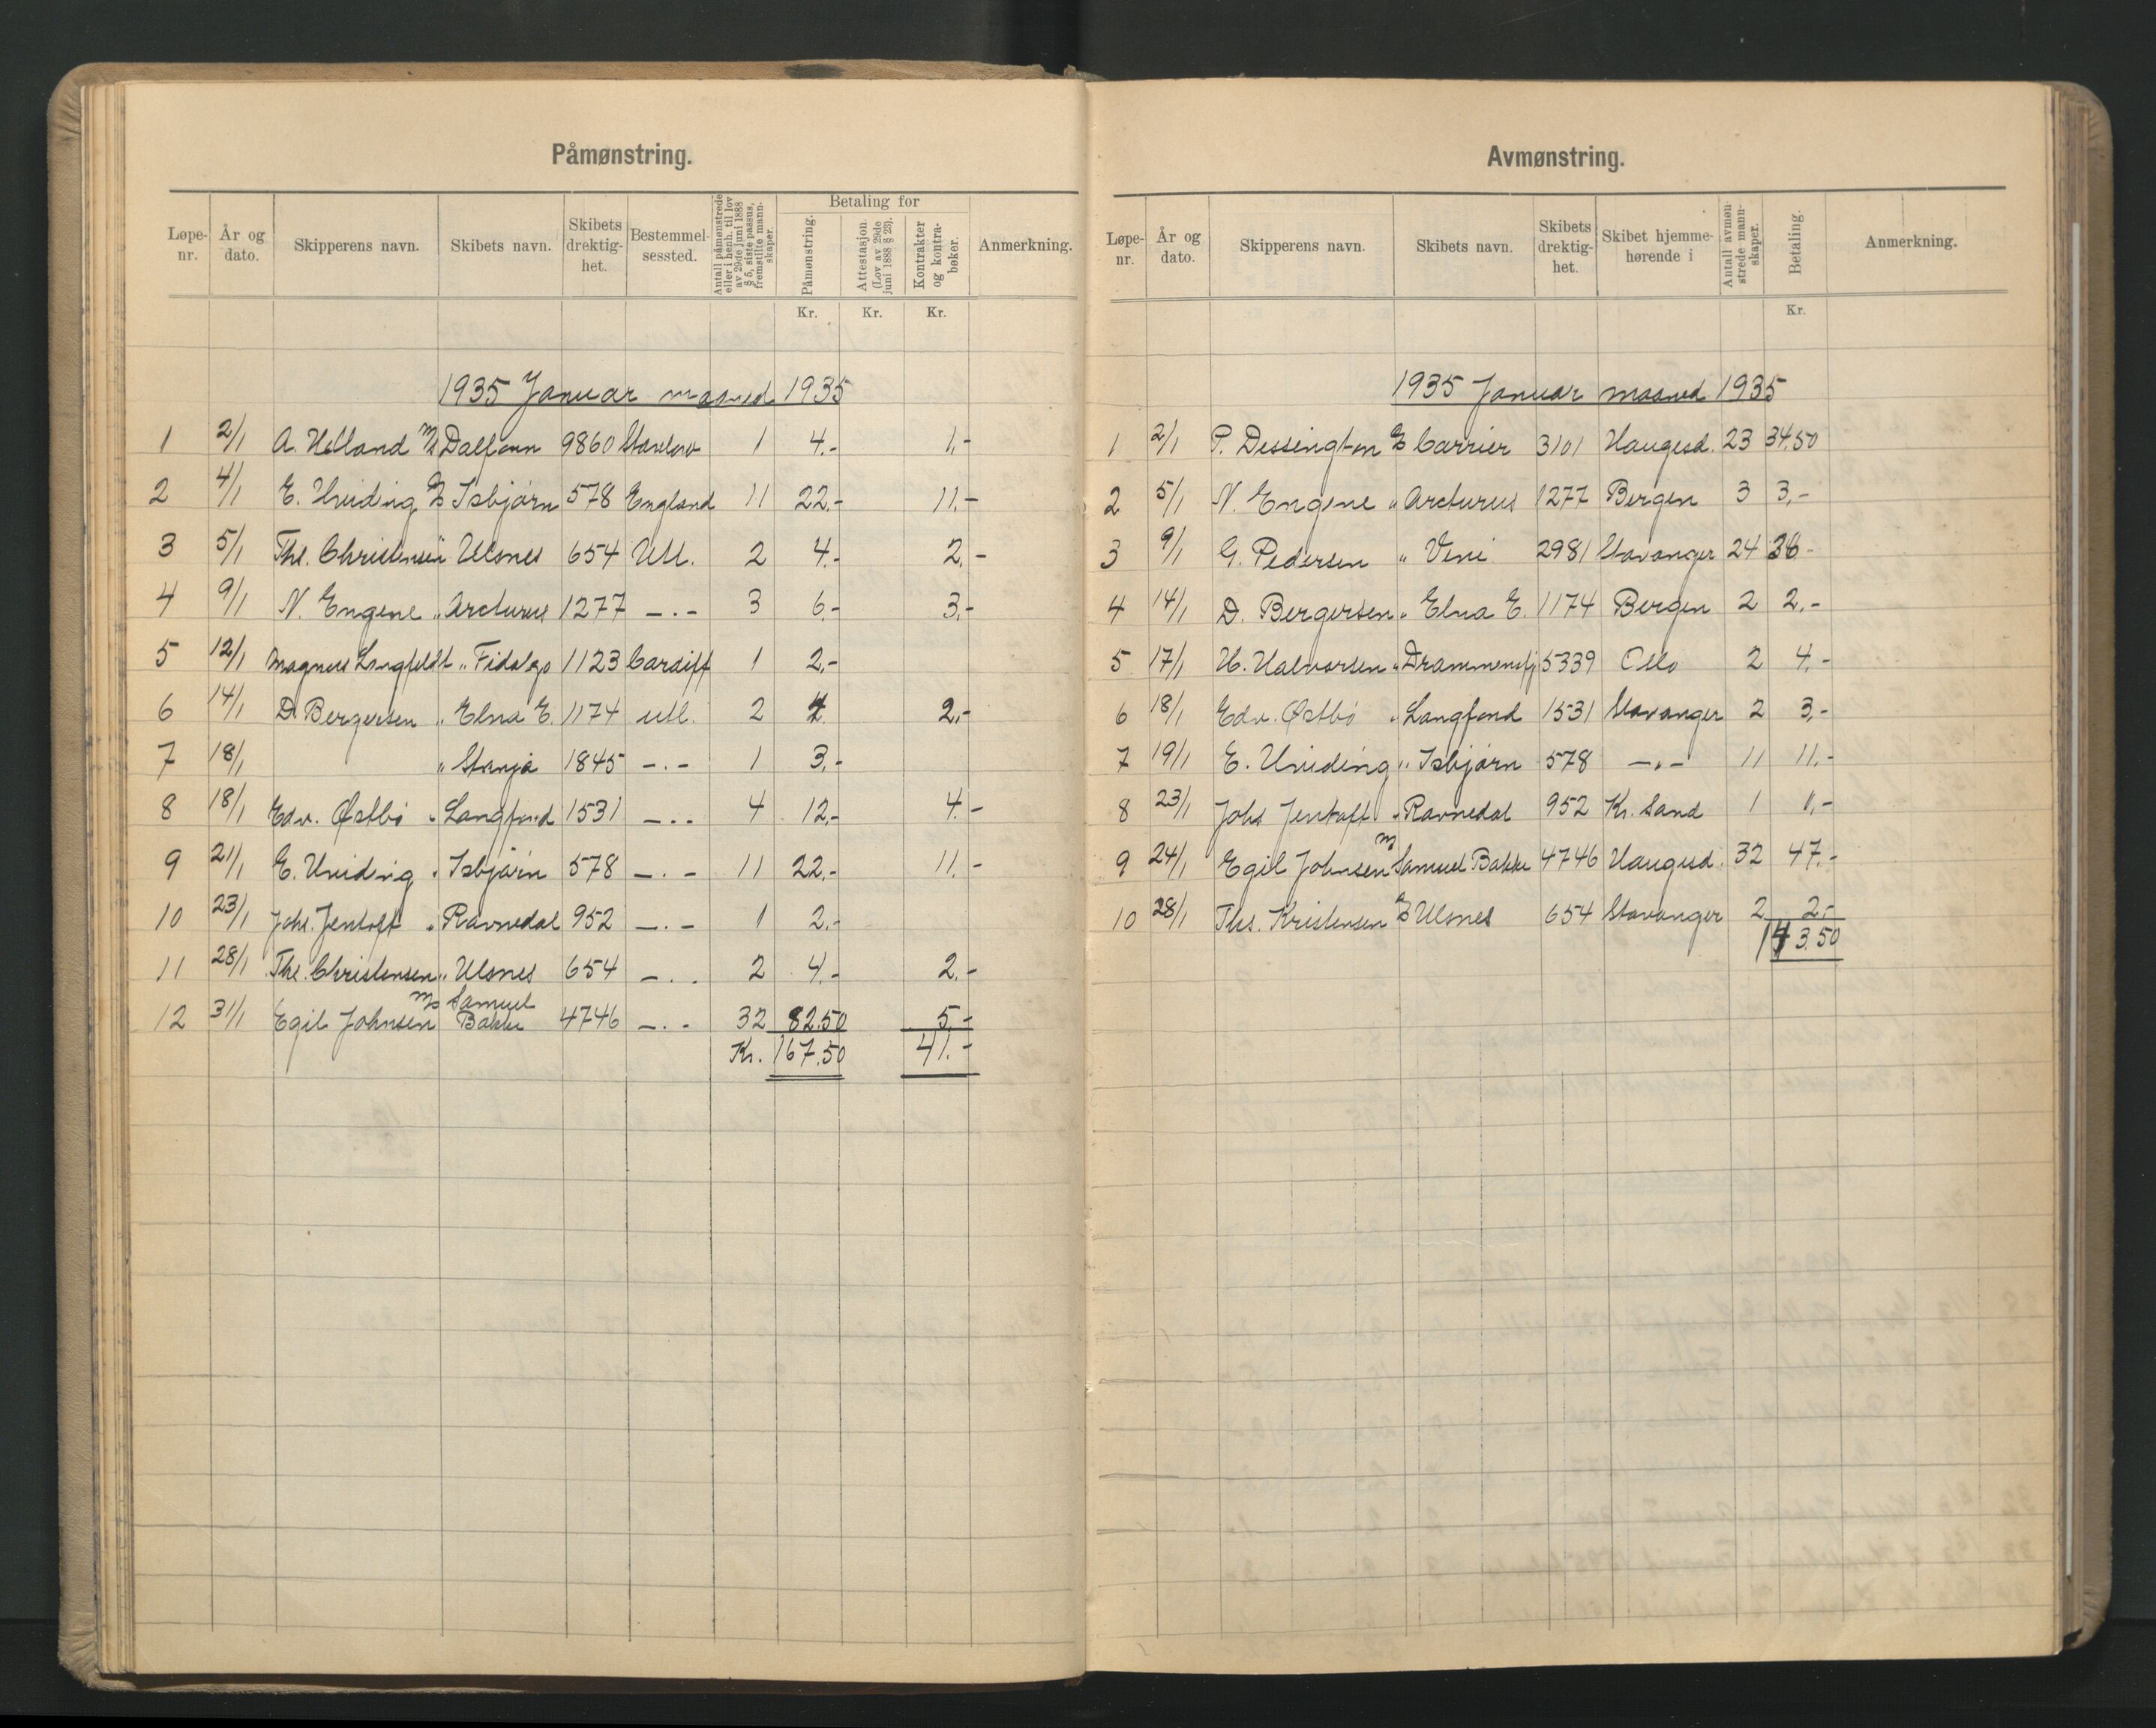 Påmønstring.
Løpe-nr. År og dato. Skipperens navn. Skibets navn. Skibets drektig-het. Bestemmel-sessted. Antall påmønstrede eller i henh. til lov av 29de juni 1888 § 5, siste passus, fremstilte mann-skaper. Betaling for Påmønstring. Attestasjon. (Lov av 29de juni 1888 § 23). Kontrakter og kontra-bøker. Anmerkning.
Kr. Kr. Kr.
1935 Januar maaned 1935
1 2/1 A. Helland M/s Dalfonn 9860 1 4.- 1,-
2 4/1 E. Hviding D/S Isbjørn 578 England 11 22.- 11.-
3 5/1 Ths. Christensen " Ulsnes 654 Utl. 2 4.- 2.-
4 9/1 N. Engene " Arcturus 1277 -.- 3 6.- 3.-
5 12/1 Magnus Langfeldt " Fidalgo 1123 Cardiff 1 2.-
6 14/1 D. Bergersen " Elna E. 1174 utl. 2 4 2.-
7 18/1 " Stanja 1845 -.- 1 3.-
8 18/1 Edv. Østbø " Langfond 1531 -.- 4 12.- 4.-
9 21/1 E. Hviding " Isbjørn 578 -.- 11 22.- 11.-
10 23/1 Johs. Jentoft " Ravnedal 952 -.- 1 2.-
11 28/1 Ths. Christensen " Ulsnes 654 -.- 2 4.- 2.-
12 31/1 Egil Johnsen M/s Samuel Bakke 4746 -.- 32 82.50 5.-
Kr. 167.50 41.-
Avmønstring.
Løpe-nr. År og dato. Skipperens navn. Skibets navn. Skibets drektig-het. Skibet hjemme-hørende i Antall avmøn-strede mann-skaper. Betaling. Anmerkning.
Kr.
1935 Januar maaned 1935
1 2/1 P. Dessington D/S Carrier 3101 Haugesd. 23 34.50
2 5/1 N. Engene " Arcturus 1277 Bergen 3 3,-
3 9/1 G. Pedersen " Veni 2981 Stavanger 24 36-
4 14/1 D. Bergersen " Elna E. 1174 Bergen 2 2.-
5 17/1 H. Halvorsen " Drammensfj 5339 Oslo 2 4.-
6 18/1 Edv. Østbø " Langfond 1531 Stavanger 2 3,-
7 19/1 E. Hviding " Isbjørn 578 -.- 11 11.-
8 23/1 Johs Jentoft " Ravnedal 952 Kr. Sand 1 1,-
9 24/1 Egil Johnsen M/s Samuel Bakke 4746 Haugesd. 32 47.-
10 28/1 Ths. Kristensen D/S Ulsnes 654 Stavanger 2 2.-
143.50